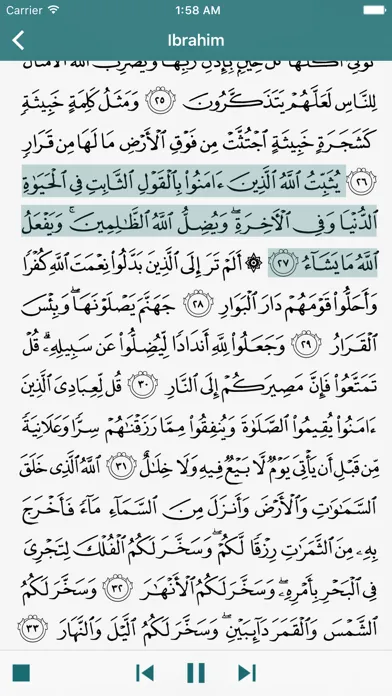 Carrier 1:58 AM
Ibrahim
تُؤْتِىٓ أُكُلَهَا كُلَّ حِينٍۭ بِإِذْنِ رَبِّهَا ۗ وَيَضْرِبُ ٱللَّهُ ٱلْأَمْثَالَ
لِلنَّاسِ لَعَلَّهُمْ يَتَذَكَّرُونَ ٢٥ وَمَثَلُ كَلِمَةٍ خَبِيثَةٍ
كَشَجَرَةٍ خَبِيثَةٍ ٱجْتُثَّتْ مِن فَوْقِ ٱلْأَرْضِ مَا لَهَا مِن قَرَارٍ
٢٦ يُثَبِّتُ ٱللَّهُ ٱلَّذِينَ ءَامَنُوا۟ بِٱلْقَوْلِ ٱلثَّابِتِ فِى ٱلْحَيَوٰةِ
ٱلدُّنْيَا وَفِى ٱلْءَاخِرَةِ ۖ وَيُضِلُّ ٱللَّهُ ٱلظَّٰلِمِينَ ۚ وَيَفْعَلُ
ٱللَّهُ مَا يَشَآءُ ٢٧ ۞ أَلَمْ تَرَ إِلَى ٱلَّذِينَ بَدَّلُوا۟ نِعْمَتَ ٱللَّهِ كُفْرًا
وَأَحَلُّوا۟ قَوْمَهُمْ دَارَ ٱلْبَوَارِ ٢٨ جَهَنَّمَ يَصْلَوْنَهَا ۖ وَبِئْسَ
ٱلْقَرَارُ ٢٩ وَجَعَلُوا۟ لِلَّهِ أَندَادًا لِّيُضِلُّوا۟ عَن سَبِيلِهِۦ ۗ قُلْ
تَمَتَّعُوا۟ فَإِنَّ مَصِيرَكُمْ إِلَى ٱلنَّارِ ٣٠ قُل لِّعِبَادِىَ ٱلَّذِينَ
ءَامَنُوا۟ يُقِيمُوا۟ ٱلصَّلَوٰةَ وَيُنفِقُوا۟ مِمَّا رَزَقْنَٰهُمْ سِرًّا وَعَلَانِيَةً
مِّن قَبْلِ أَن يَأْتِىَ يَوْمٌ لَّا بَيْعٌ فِيهِ وَلَا خِلَٰلٌ ٣١ ٱللَّهُ ٱلَّذِى خَلَقَ
ٱلسَّمَٰوَٰتِ وَٱلْأَرْضَ وَأَنزَلَ مِنَ ٱلسَّمَآءِ مَآءً فَأَخْرَجَ
بِهِۦ مِنَ ٱلثَّمَرَٰتِ رِزْقًا لَّكُمْ ۖ وَسَخَّرَ لَكُمُ ٱلْفُلْكَ لِتَجْرِىَ
فِى ٱلْبَحْرِ بِأَمْرِهِۦ ۖ وَسَخَّرَ لَكُمُ ٱلْأَنْهَٰرَ ٣٢ وَسَخَّرَ لَكُمُ
ٱلشَّمْسَ وَٱلْقَمَرَ دَآئِبَيْنِ ۖ وَسَخَّرَ لَكُمُ ٱلَّيْلَ وَٱلنَّهَارَ ٣٣